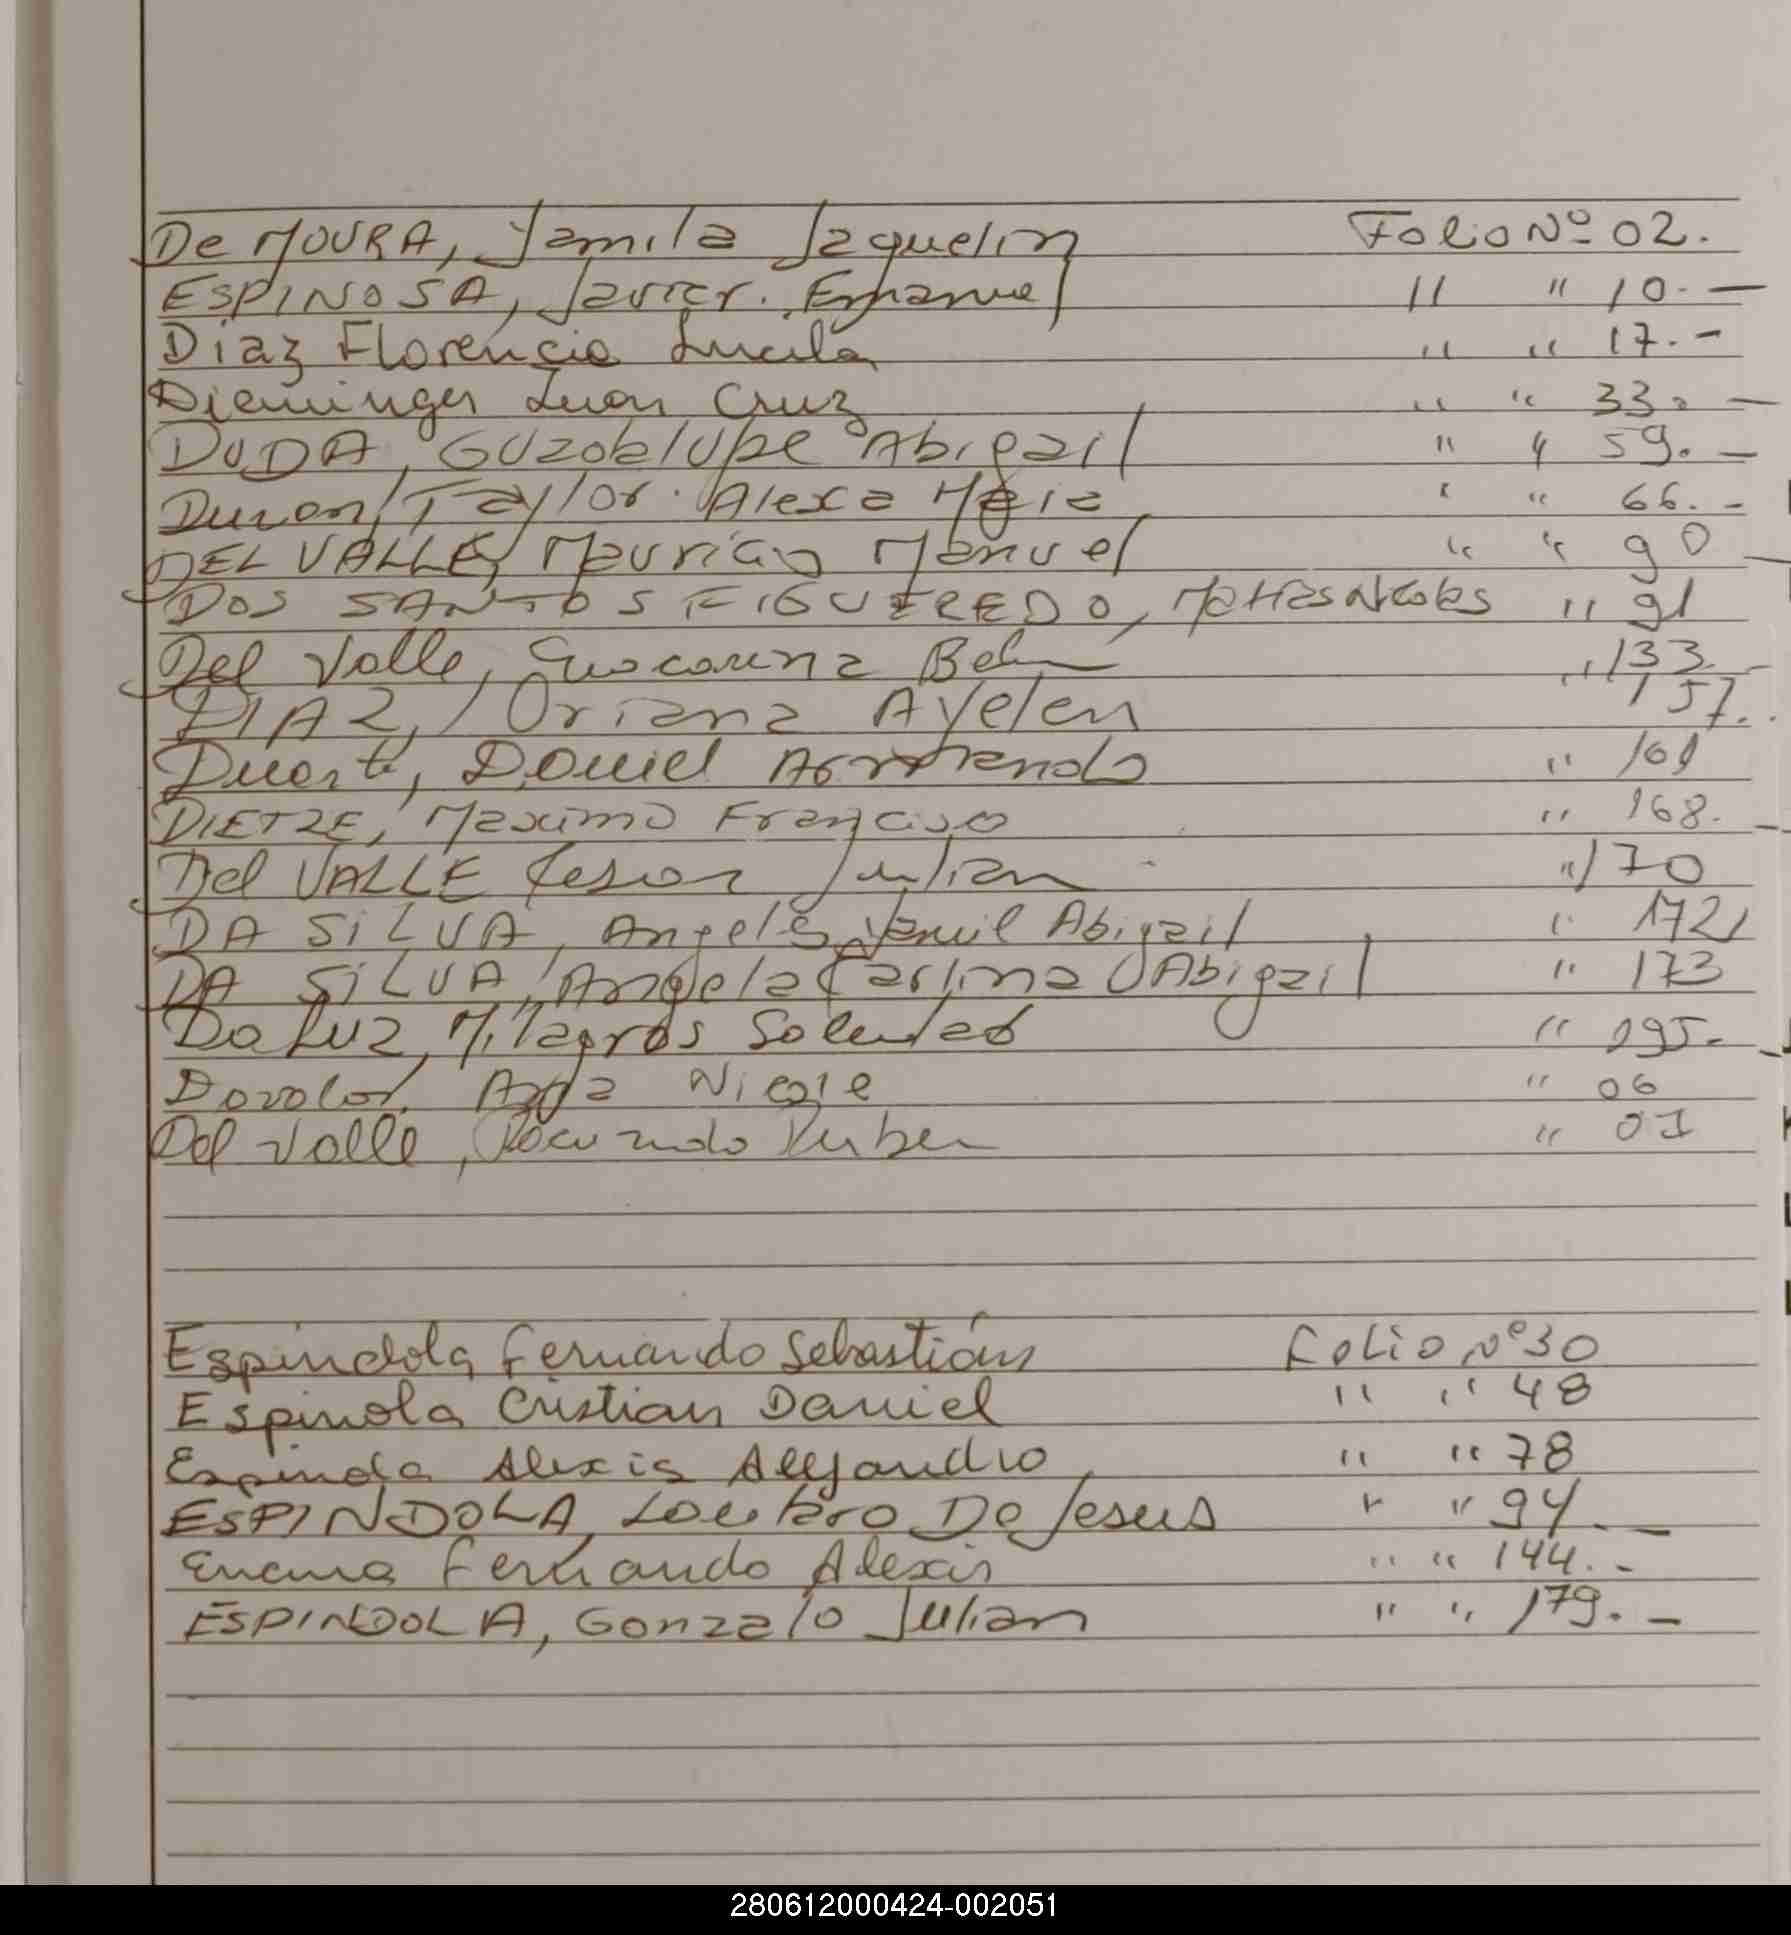 De MOURA, Yamila Jaquelin Folio Nº 02.
ESPINOSA, Javier. Emanuel " " 10. —
Diaz Florencia Lucila " " 17. -
Dieminger Juan Cruz " " 33. —
DUDA, GUzobelupe Abigail " " 59. —
Duran, Taylor. Alexa " 66. -
DEL VALLE, Mauricio Manuel " " 90 —
DOS SANTOS FIGUEREDO, Matias Nicolas " 91
Del Valle, Belen " 133
DIAZ, Oriana Ayelen 157.
Duarte, Daniel Armando " 161
DIETZE, Maximo Francisco " 168. -
Del VALLE Cesar Julian " 170
DA SiLVA, Angeles Yamil Abigail " 172
DA SiLVA, Angela Carlina Abigail " 173
Da Luz, Milagros Soledad " 195. -
Nicole " 06
Del Valle, Facundo Ruben " 07
Espindola Fernando Sebastián Folio Nº 30
Espinola Cristian Daniel " " 48
Espindola Alexis Alejandro " " 78
ESPINDOLA, Lautaro De Jesus " " 94. —
Encina Fernando Alexis " " 144. -
ESPINDOLA, Gonzalo Julian " " 179. -
280612000424-002051